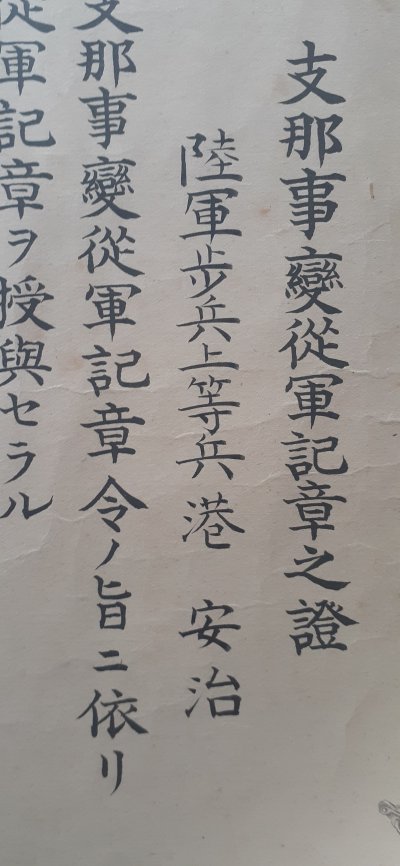 支那事變從軍記章之證
陸軍步兵上等兵 港 安治
支那事變從軍記章令ノ旨ニ依リ
從軍記章ヲ授與セラル